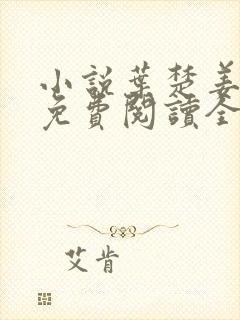 小說葉楚姜
免費閱讀全
艾肯